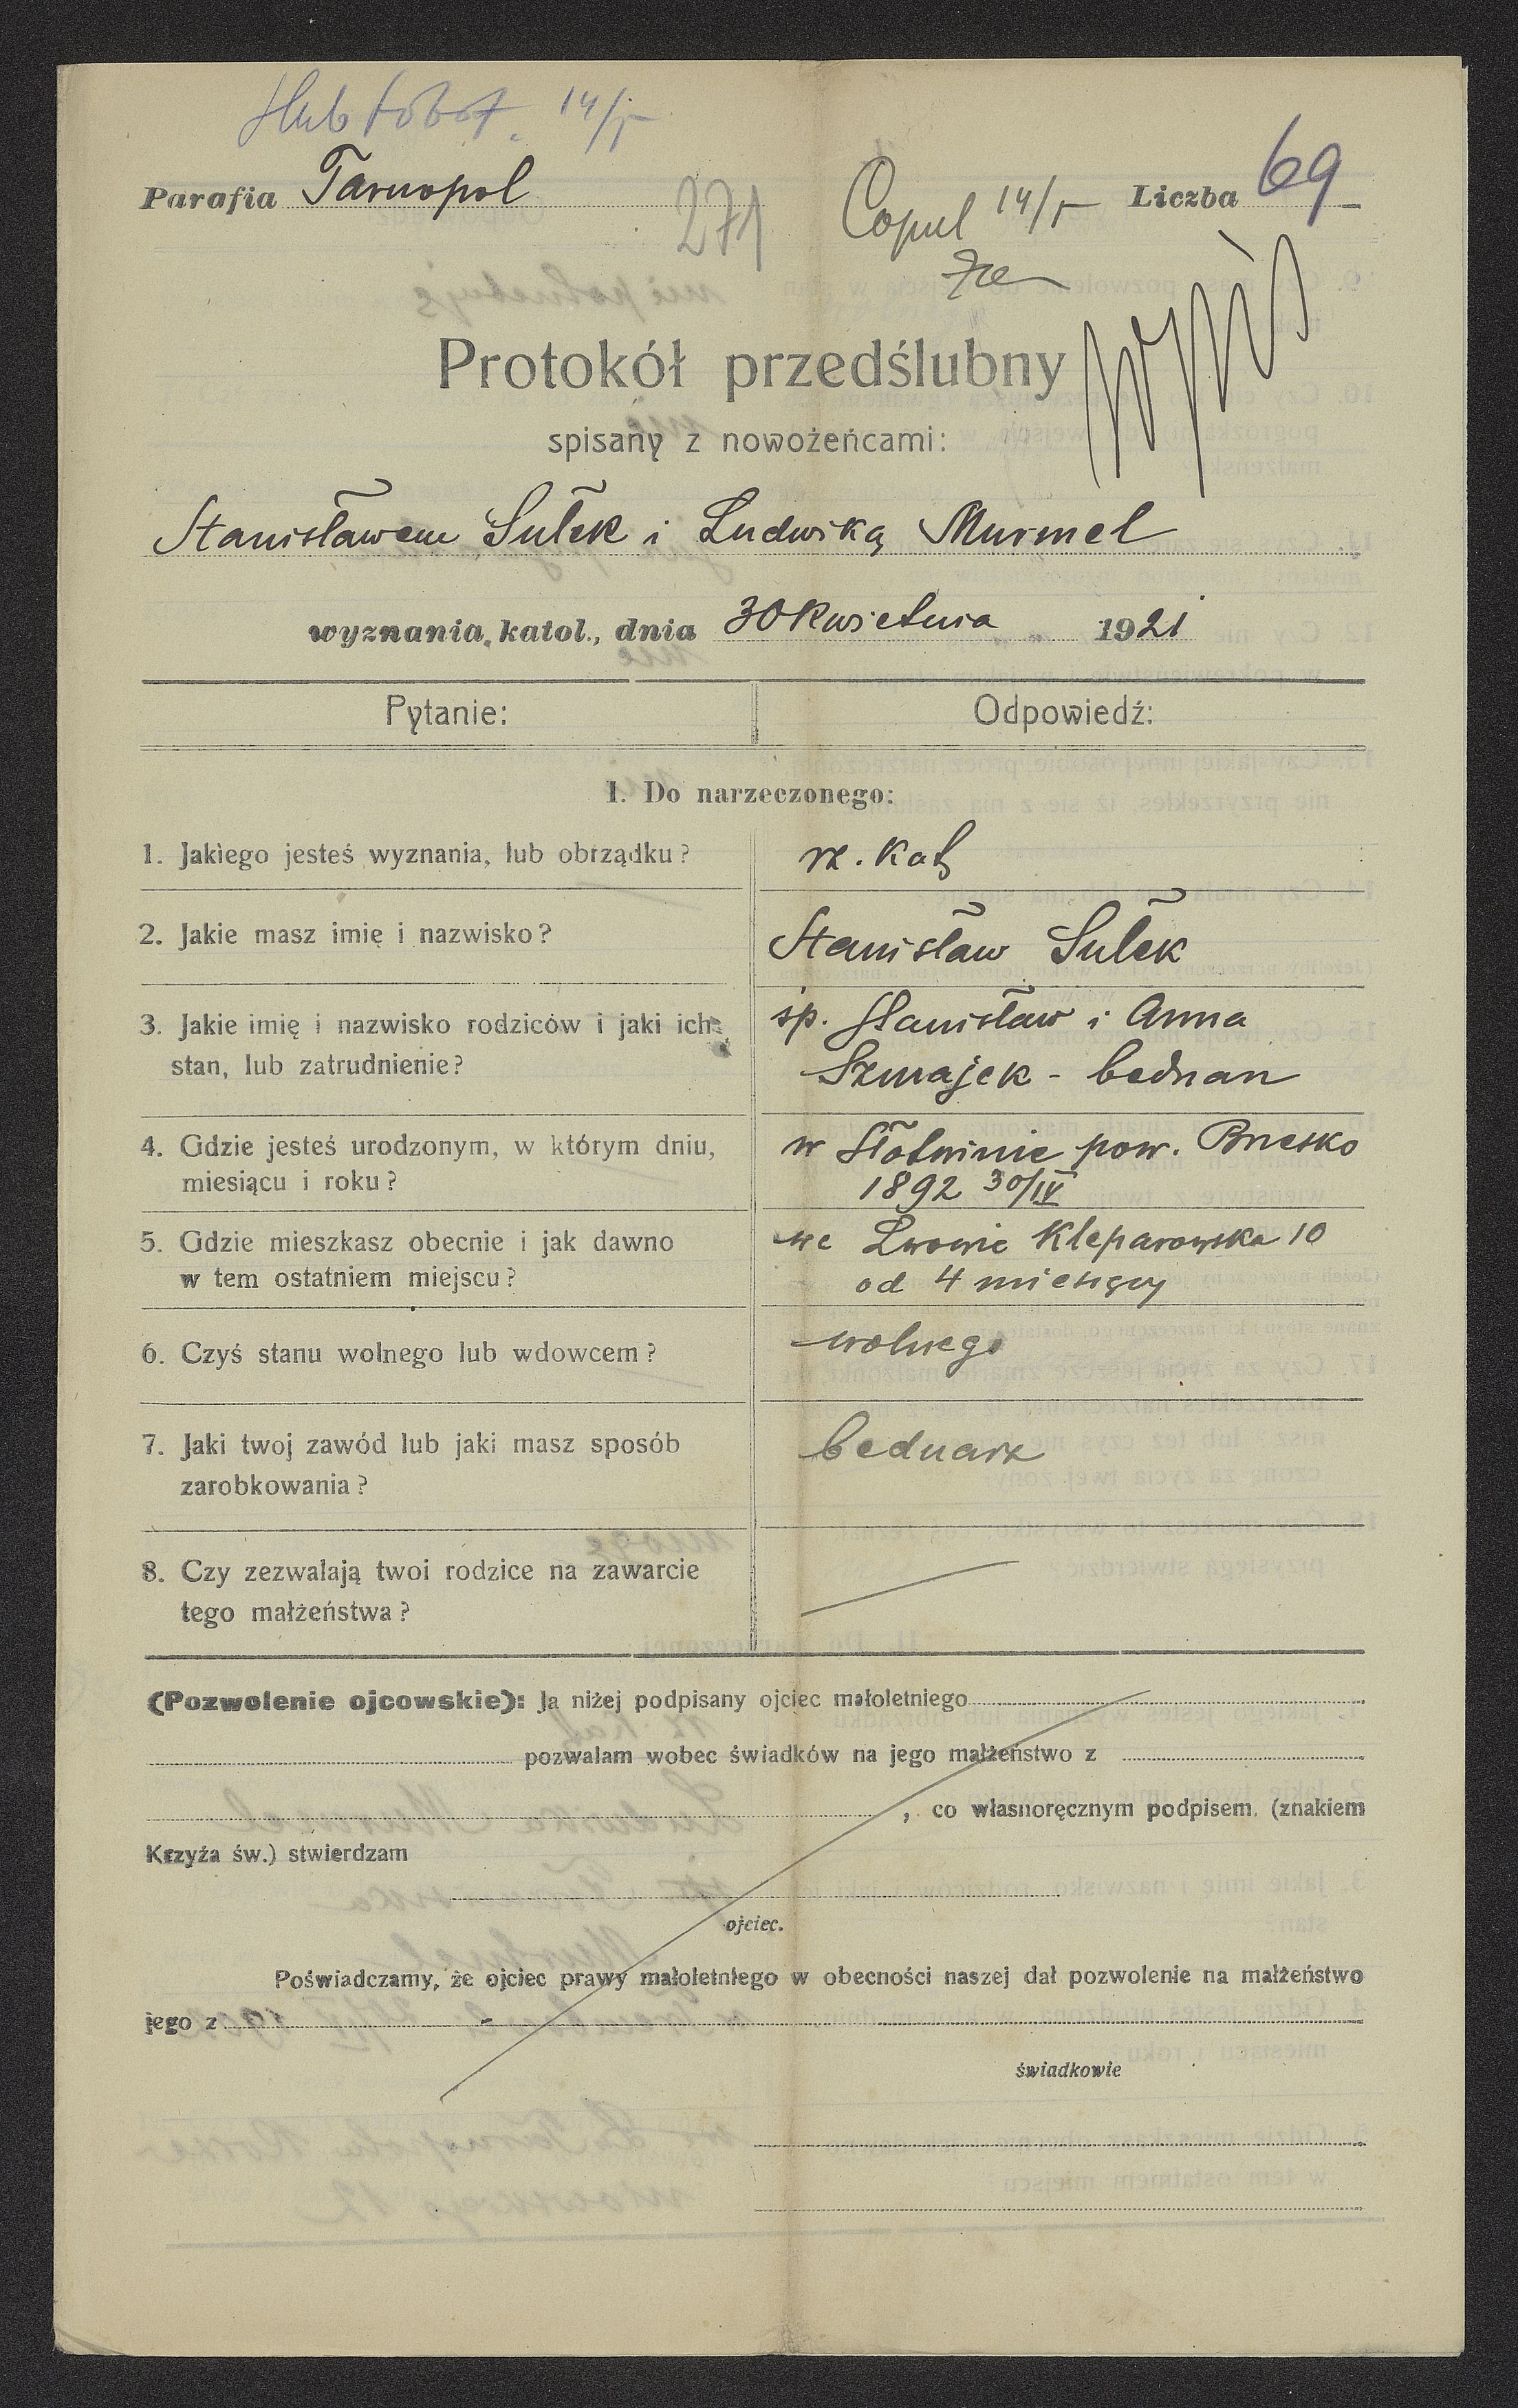 Ślub sobot. 14/5
Parafia Tarnopol 271 Copul 14/5 Liczba 69
Wypis
Protokół przedślubny
spisany z nowożeńcami:
Stanisławem Sułek i Ludwiką Murmel
wyznania katol., dnia 30 Kwietnia 1921
Pytanie: Odpowiedź:
I. Do narzeczonego:
1. Jakiego jesteś wyznania, lub obrządku? rz. kat
2. Jakie masz imię i nazwisko? Stanisław Sułek
3. Jakie imię i nazwisko rodziców i jaki ich śp. Stanisław i Anna
stan, lub zatrudnienie? Szmajek - bednarz
4. Gdzie jesteś urodzonym, w którym dniu, w Słotwinie pow. Brzesko
miesiącu i roku? 1892 30/IV
5. Gdzie mieszkasz obecnie i jak dawno we Lwowie Kleparowska 10
w tem ostatniem miejscu? od 4 miesięcy
6. Czyś stanu wolnego lub wdowcem? wolnego
7. Jaki twoj zawód lub jaki masz sposób bednarz
zarobkowania?
8. Czy zezwalają twoi rodzice na zawarcie
tego małżeństwa?
(Pozwolenie ojcowskie): Ja niżej podpisany ojciec małoletniego
pozwalam wobec świadków na jego małżeństwo z
, co własnoręcznym podpisem (znakiem
Krzyża św.) stwierdzam
ojciec.
Poświadczamy, że ojciec prawy małoletniego w obecności naszej dał pozwolenie na małżeństwo
jego z
świadkowie